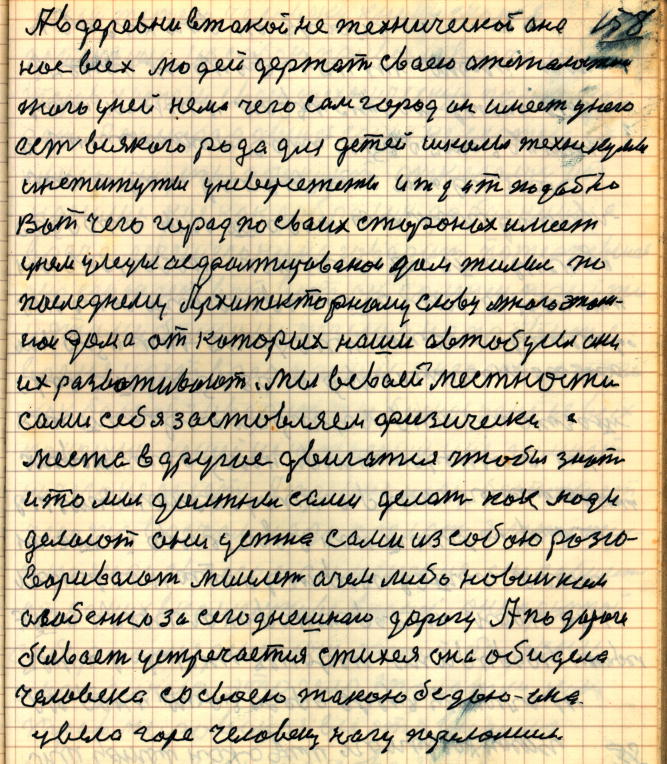 А в деревни в такой не технической она 158
ное всех людей держат сваею отсталостию
того у ней нема чего сам город он имеет у него
сет всякого рода для детей школы техникумы
институты университеты и т д ит подобно
Вот чего город по сваих стороных имеет
унем улецы асфальтированои дом жилые по
последнему Архитекторному слову многоэтаж-
ное дома от которых наши автобусы они
их развотивают. Мы всваей местности
сами себя застовляем физически с
места в другое двигатся чтобы знать
ито мы должны сами делать как люди
делают они устна сами из собою розго-
варивают мыслет очем либо новинком
особенно за сегоднешнаю дорогу А по дороги
бывает устречается стихея она обидела
человека со сваею такою бедою-она
увела горе человеку ногу переломил.